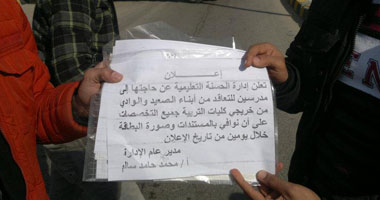 إعـــــلان
تعلن إدارة الحسنة التعليمية عن حاجتها إلى
مدرسين للتعاقد من أبناء الصعيد والوادي
من خريجي كليات التربية جميع التخصصات
على أن نوافي بالمستندات وصورة البطاقة
خلال يومين من تاريخ الإعلان
مدير عام الإدارة
أ / محمد حامد سالم